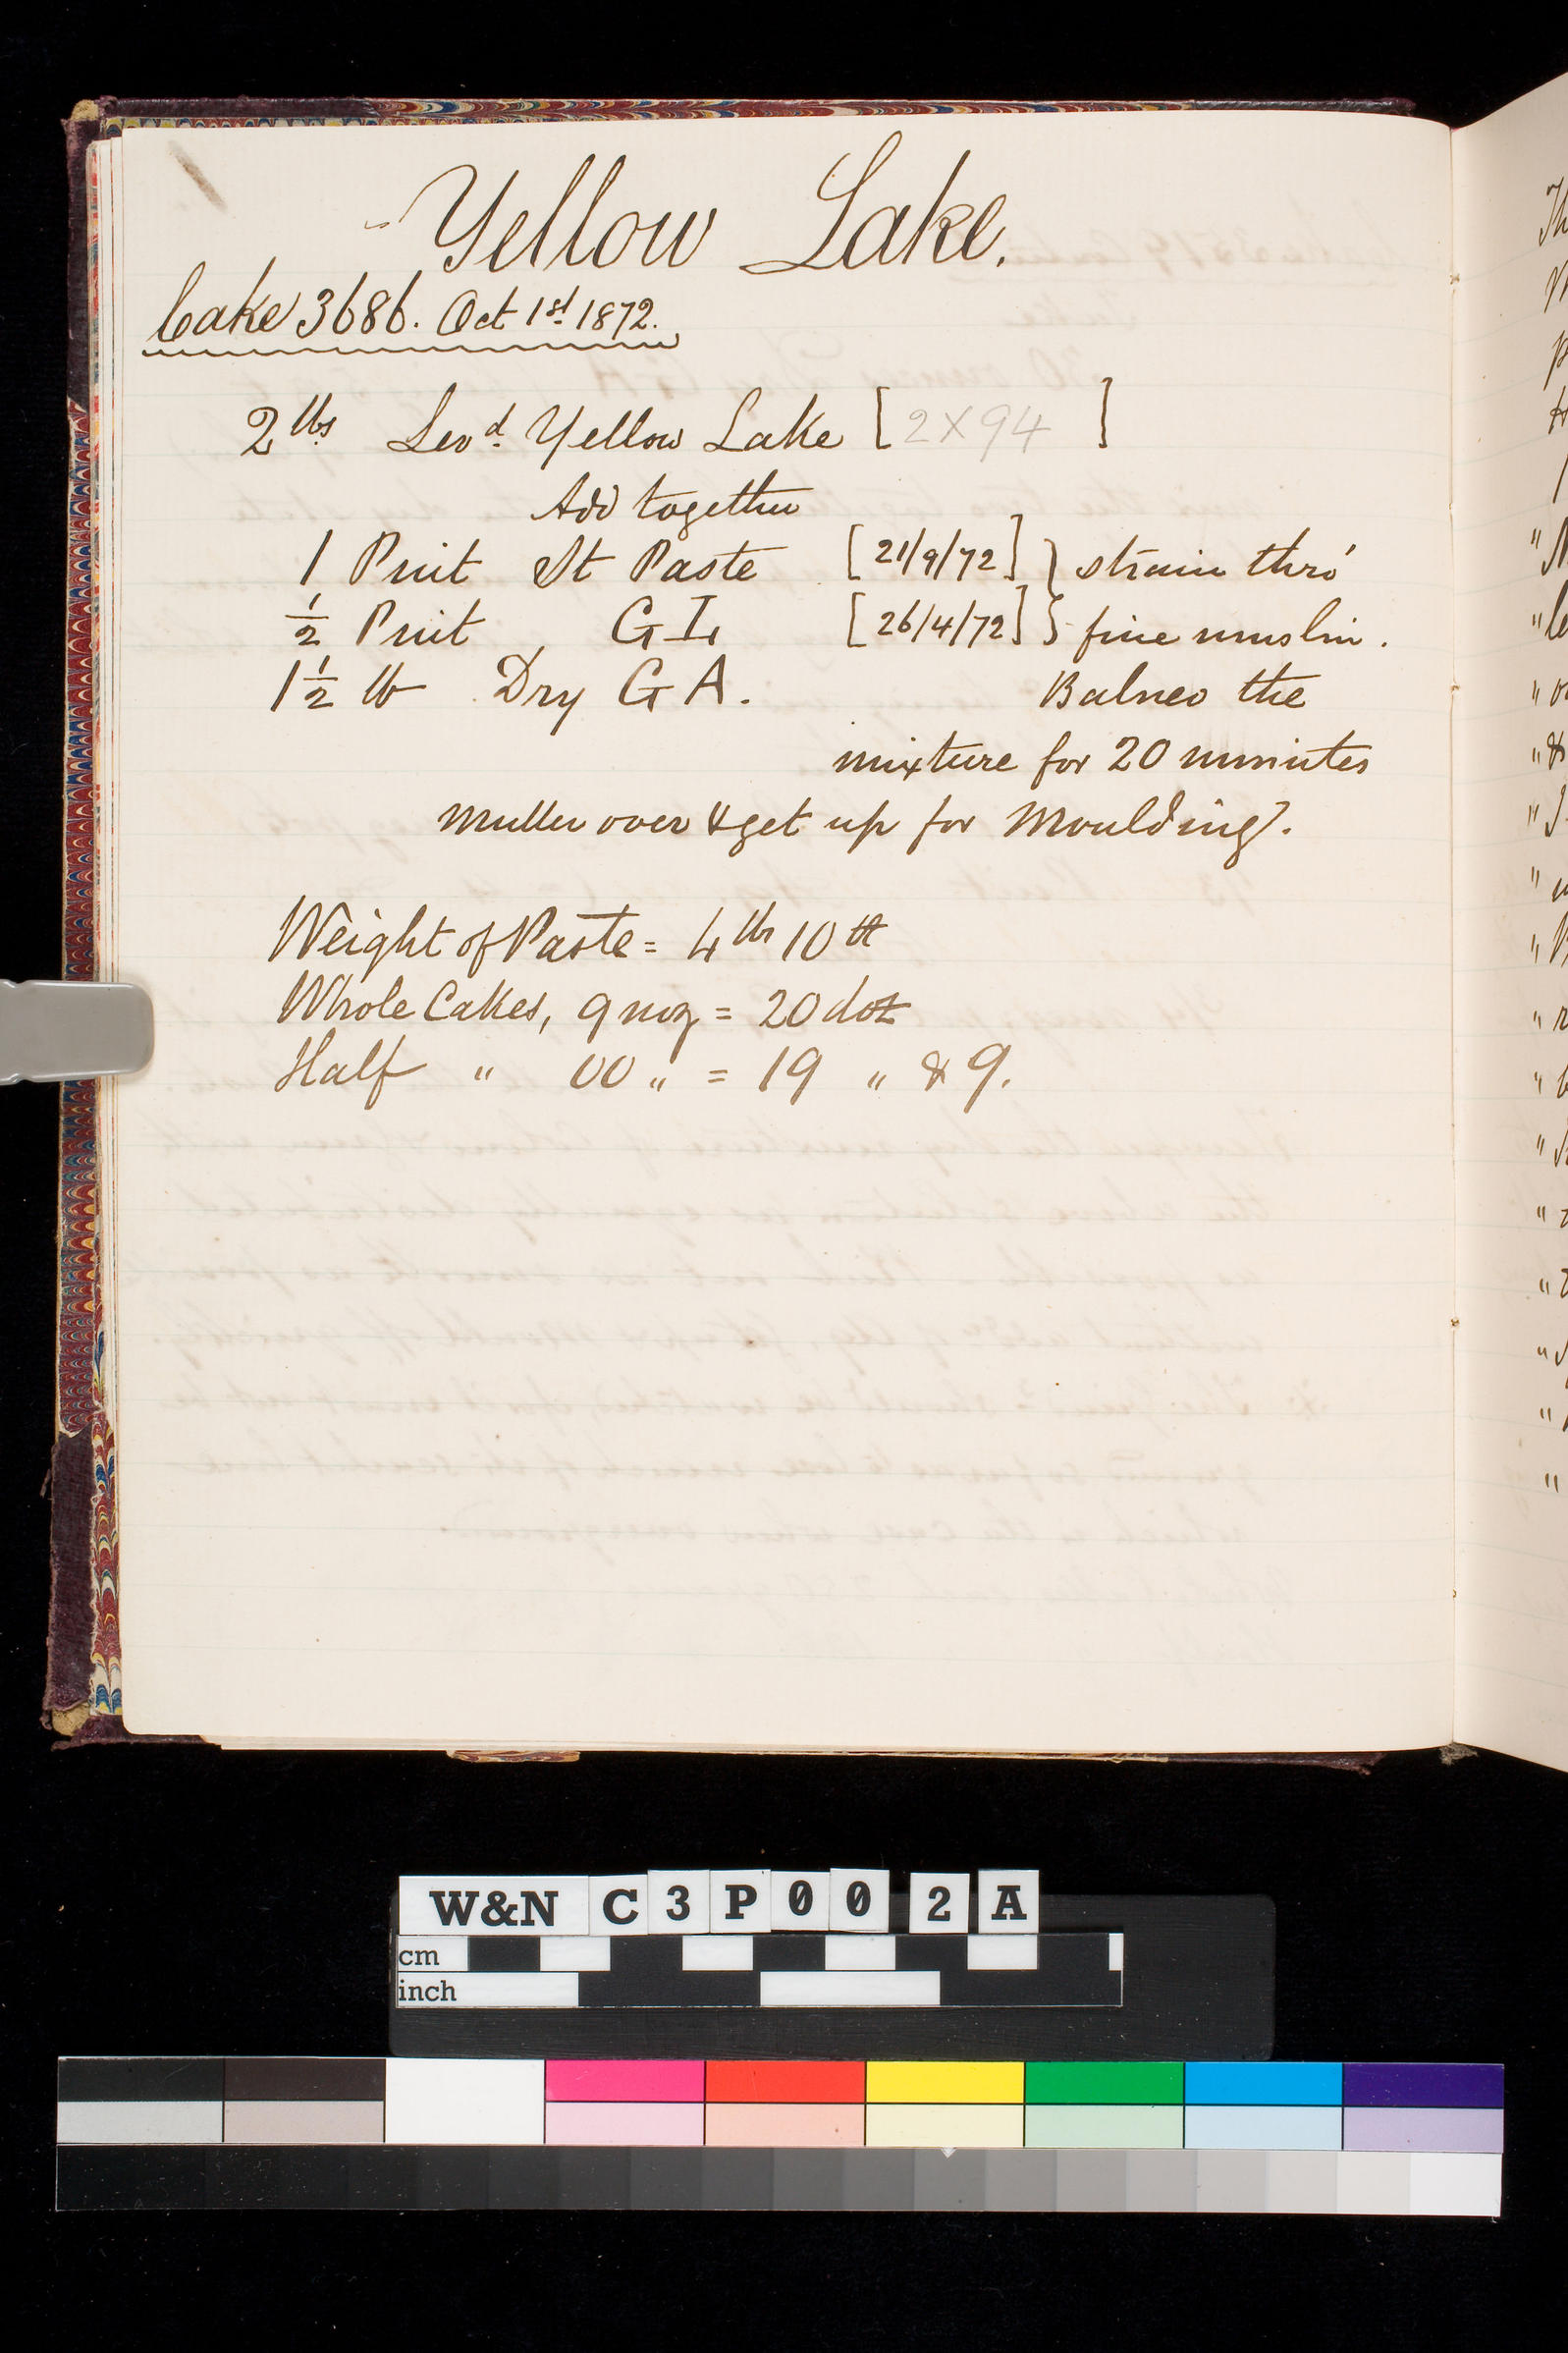 Yellow Lake.
Cake 3686. Oct 1st 1872.
2 lbs Levd Yellow Lake [2X94 ]
Add together
1 Pint St Paste [21/9/72] } strain thro'
1/2 Pint GL [26/4/72] } fine muslin.
1 1/2 lb Dry GA. Balneo the
mixture for 20 minutes
Muller over & get up for Moulding.
Weight of Paste = 4 lbs 10
Whole Cakes, 9 = 20 doz
Half " 00 " = 19 " & 9.
W&N C3P002A
cm
inch